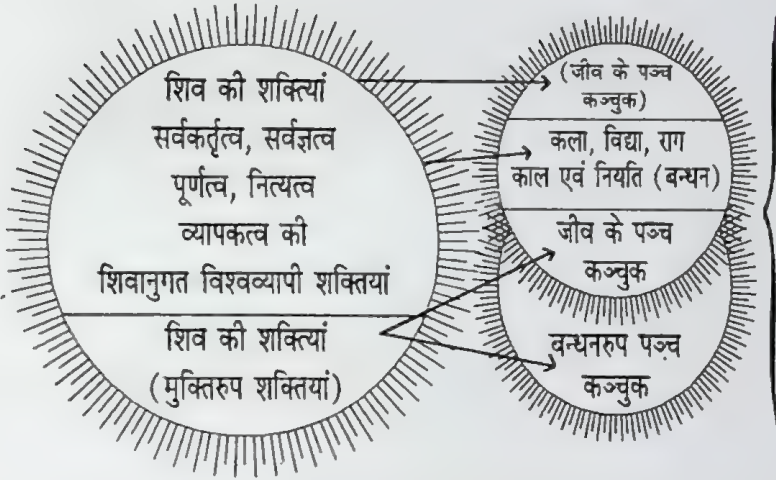 शिव की शक्तियां
सर्वकर्तृत्व, सर्वज्ञत्व
पूर्णत्व, नित्यत्व
व्यापकत्व की
शिवानुगत विश्वव्यापी शक्तियां
शिव की शक्तियां
(मुक्तिरुप शक्तियां)
(जीव के पञ्च
कञ्चुक)
कला, विद्या, राग
काल एवं नियति (बन्धन)
जीव के पञ्च
कञ्चुक
बन्धनरुप पञ्च
कञ्चुक